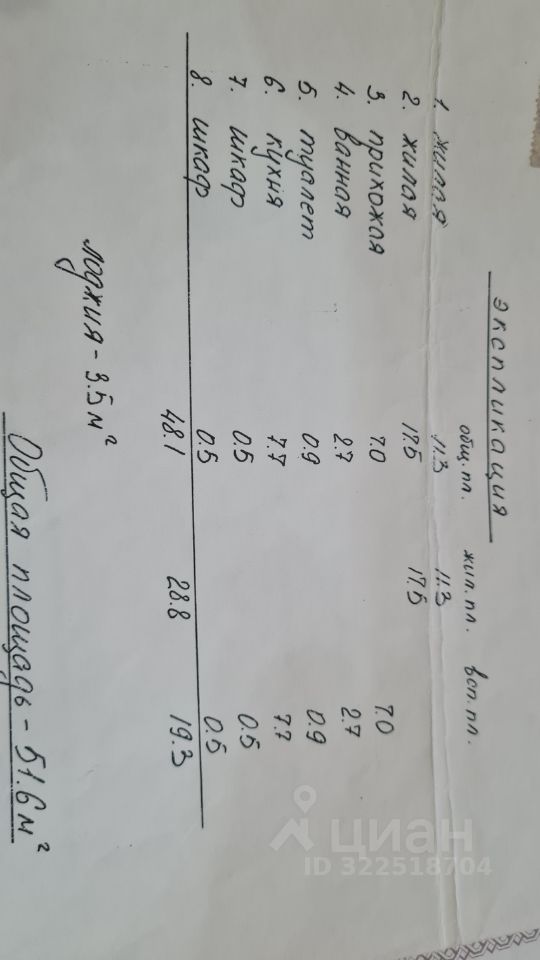 экспликация
общ.пл. жил.пл. всп.пл.
1. жилая 11.3 11.3
2. жилая 17.5 17.5
3. прихожая 7.0 7.0
4. ванная 2.7 2.7
5. туалет 0.9 0.9
6. кухня 7.7 7.7
7. шкаф 0.5 0.5
8. шкаф 0.5 0.5
48.1 28.8 19.3
лоджия - 3.5 м²
Общая площадь - 51.6 м²
циан
ID 322518704